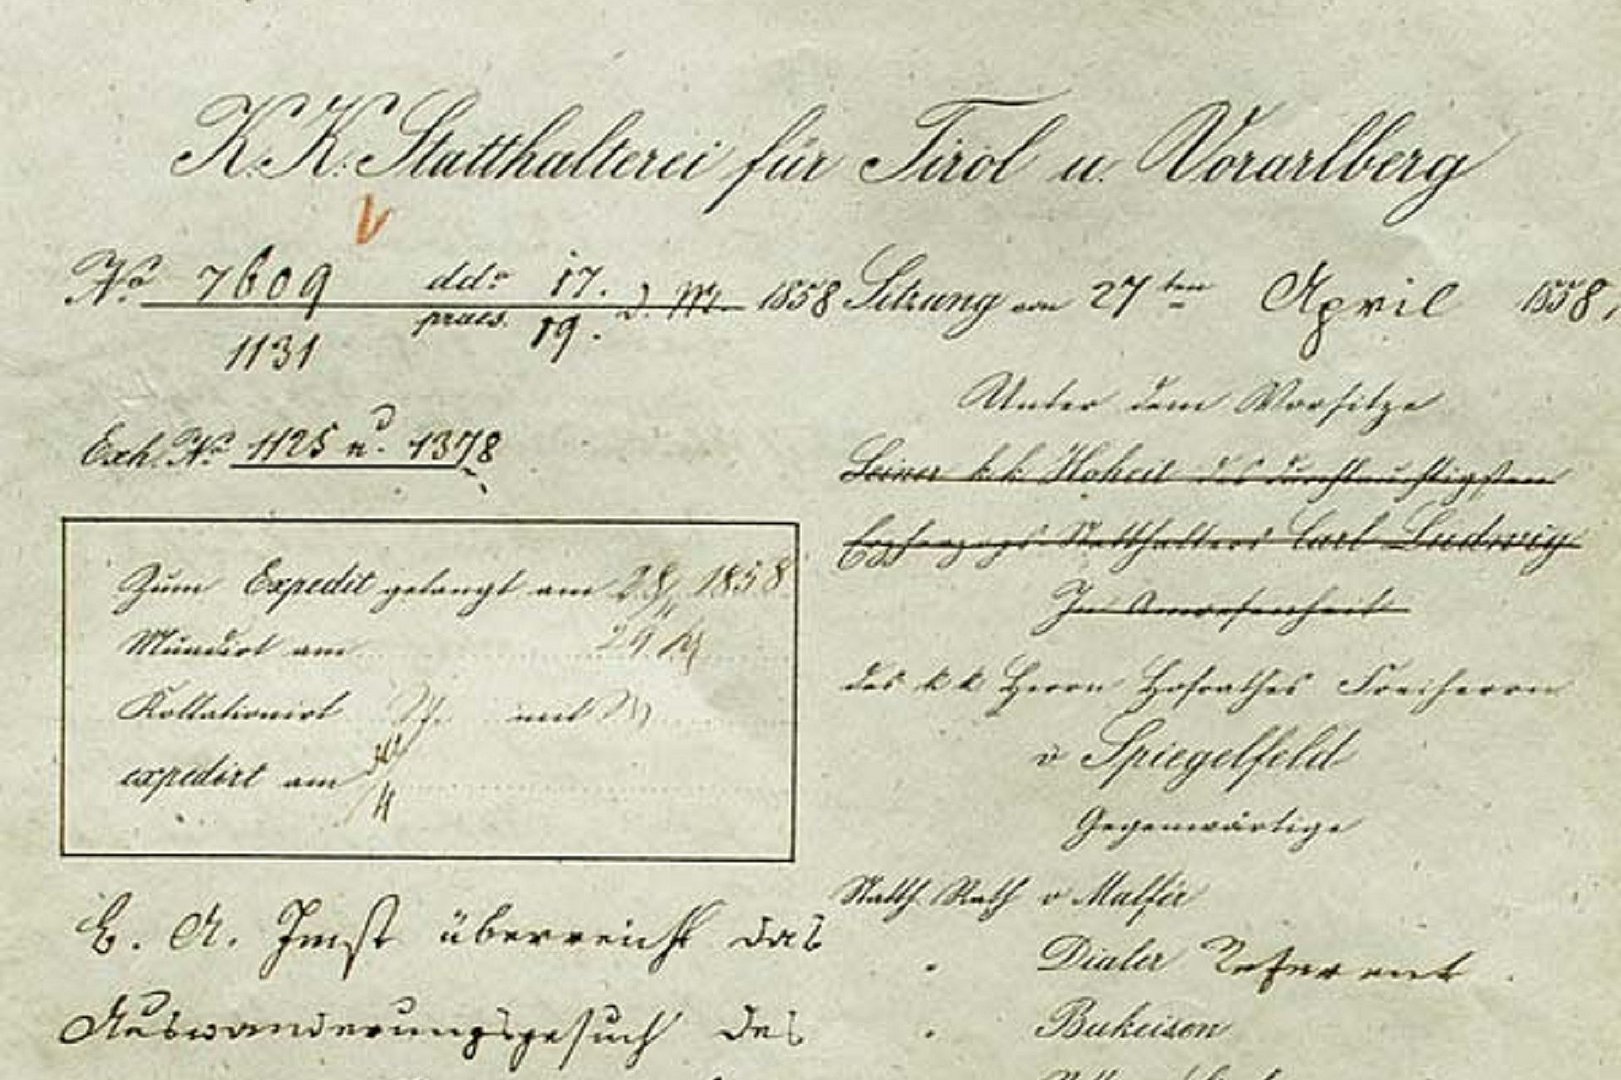 K. K. Statthalterei für Tirol u. Vorarlberg
No 7609 ddo 17. d. M. 1858
1131 praes. 19.
Exh. No 1125 u. 1378
Zum Expedit gelangt am 28/4 1858
Mundirt am 29.
Kollationirt mit
expedirt am 30/4
B. A. Imst überreicht das
Auswanderungsgesuch des
Sitzung vom 27ten April 1858.
Unter dem Vorsitze
Seiner k. k. Hoheit des durchlauchtigsten
Erzherzogs Statthalters Carl Ludwig
In Anwesenheit
des k k Herrn Hofrathes Freiherrn
v Spiegelfeld
Gegenwärtige
Statth. Rath v Malfér
" Dialer Referent
" Bukeisen